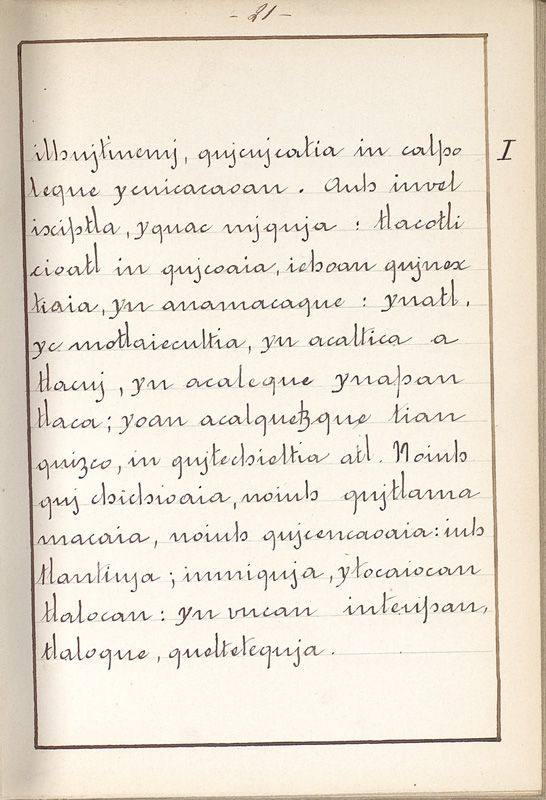 - 21 -
I
ilhujtinemj, qujcujcatia in calpo
leque ycuicacaoan. Auh in vel
ixiptla, yquac mjquja : tlacotli
cioatl in qujcoaia, ichoan qujnex
tiaia, yn anamacaque : yn atl,
yc motlaiecultia, yn acaltica a
tlacuj, yn acaleque yn apan
tlaca; yoan acalquetzque tian
quizco, in qujtechieltia atl. No iuh
quj chichioaia, no iuh qujtlama
macaia, no iuh qujcencaoaia: iuh
tlantiuja ; inmiquja, ytocaiocan
tlalocan : yn vncan inteixpan,
tlaloque, queltetequja.